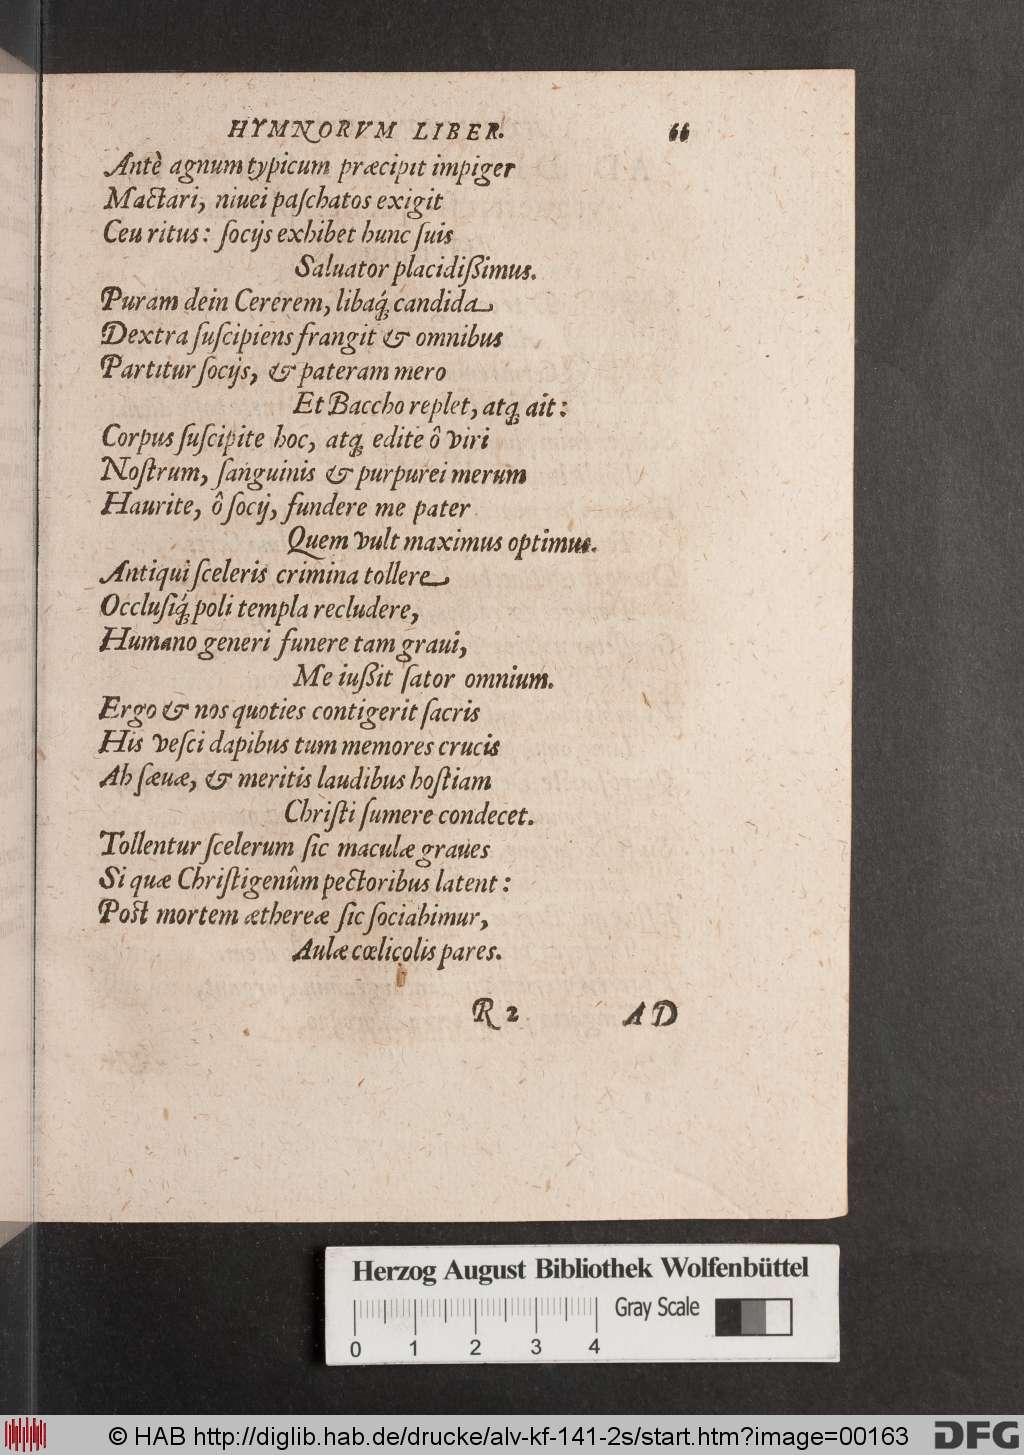 HYMNORVM LIBER. 66
Antè agnum typicum præcipit impiger
Mactari, niuei paſchatos exigit
Ceu ritus: ſocijs exhibet hunc ſuis
Saluator placidißimus.
Puram dein Cererem, libaq́; candida
Dextra ſuſcipiens frangit & omnibus
Partitur ſocijs, & pateram mero
Et Baccho replet, atq; ait:
Corpus ſuſcipite hoc, atq; edite ô viri
Noſtrum, ſanguinis & purpurei merum
Haurite, ô ſocij, fundere me pater
Quem vult maximus optimus.
Antiqui ſceleris crimina tollere
Occluſiq́; poli templa recludere,
Humano generi funere tam graui,
Me iußit ſator omnium.
Ergo & nos quoties contigerit ſacris
His veſci dapibus tum memores crucis
Ah ſæuæ, & meritis laudibus hoſtiam
Chriſti ſumere condecet.
Tollentur ſcelerum ſic maculæ graues
Si quæ Chriſtigenûm pectoribus latent:
Poſt mortem æthereæ ſic ſociabimur,
Aulæ cœlicolis pares.
R 2 AD
Herzog August Bibliothek Wolfenbüttel
Gray Scale
0 1 2 3 4
© HAB http://diglib.hab.de/drucke/alv-kf-141-2s/start.htm?image=00163 DFG